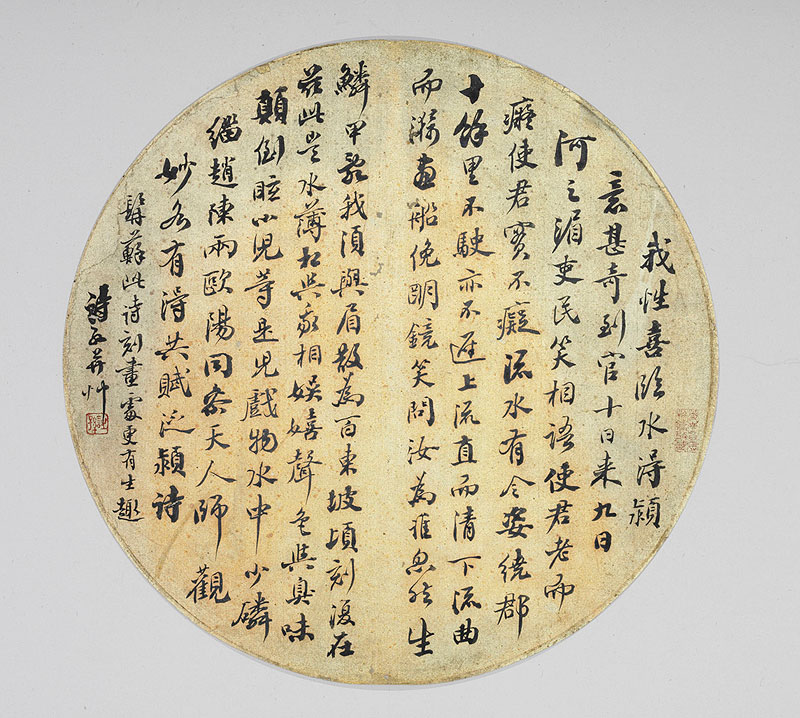 我性喜臨水得潁
意甚奇到官十日来九日
河之湄吏民笑相語使君老而
癡使君實不癡流水有令姿繞郡
十餘里不駛亦不遲上流直而清下流曲
而漪畫船俛明鏡笑問汝為誰忽然生
鱗甲亂我須與眉散為百東坡頃刻復在
茲此豈水薄相與我相娛嬉聲色與臭味
顛倒眩小兒等是兒戲物水中少磷
緇趙陳兩歐陽同參天人師觀
妙各有得共賦泛潁詩
髯蘇此詩刻畫處更有生趣
詩正并艸